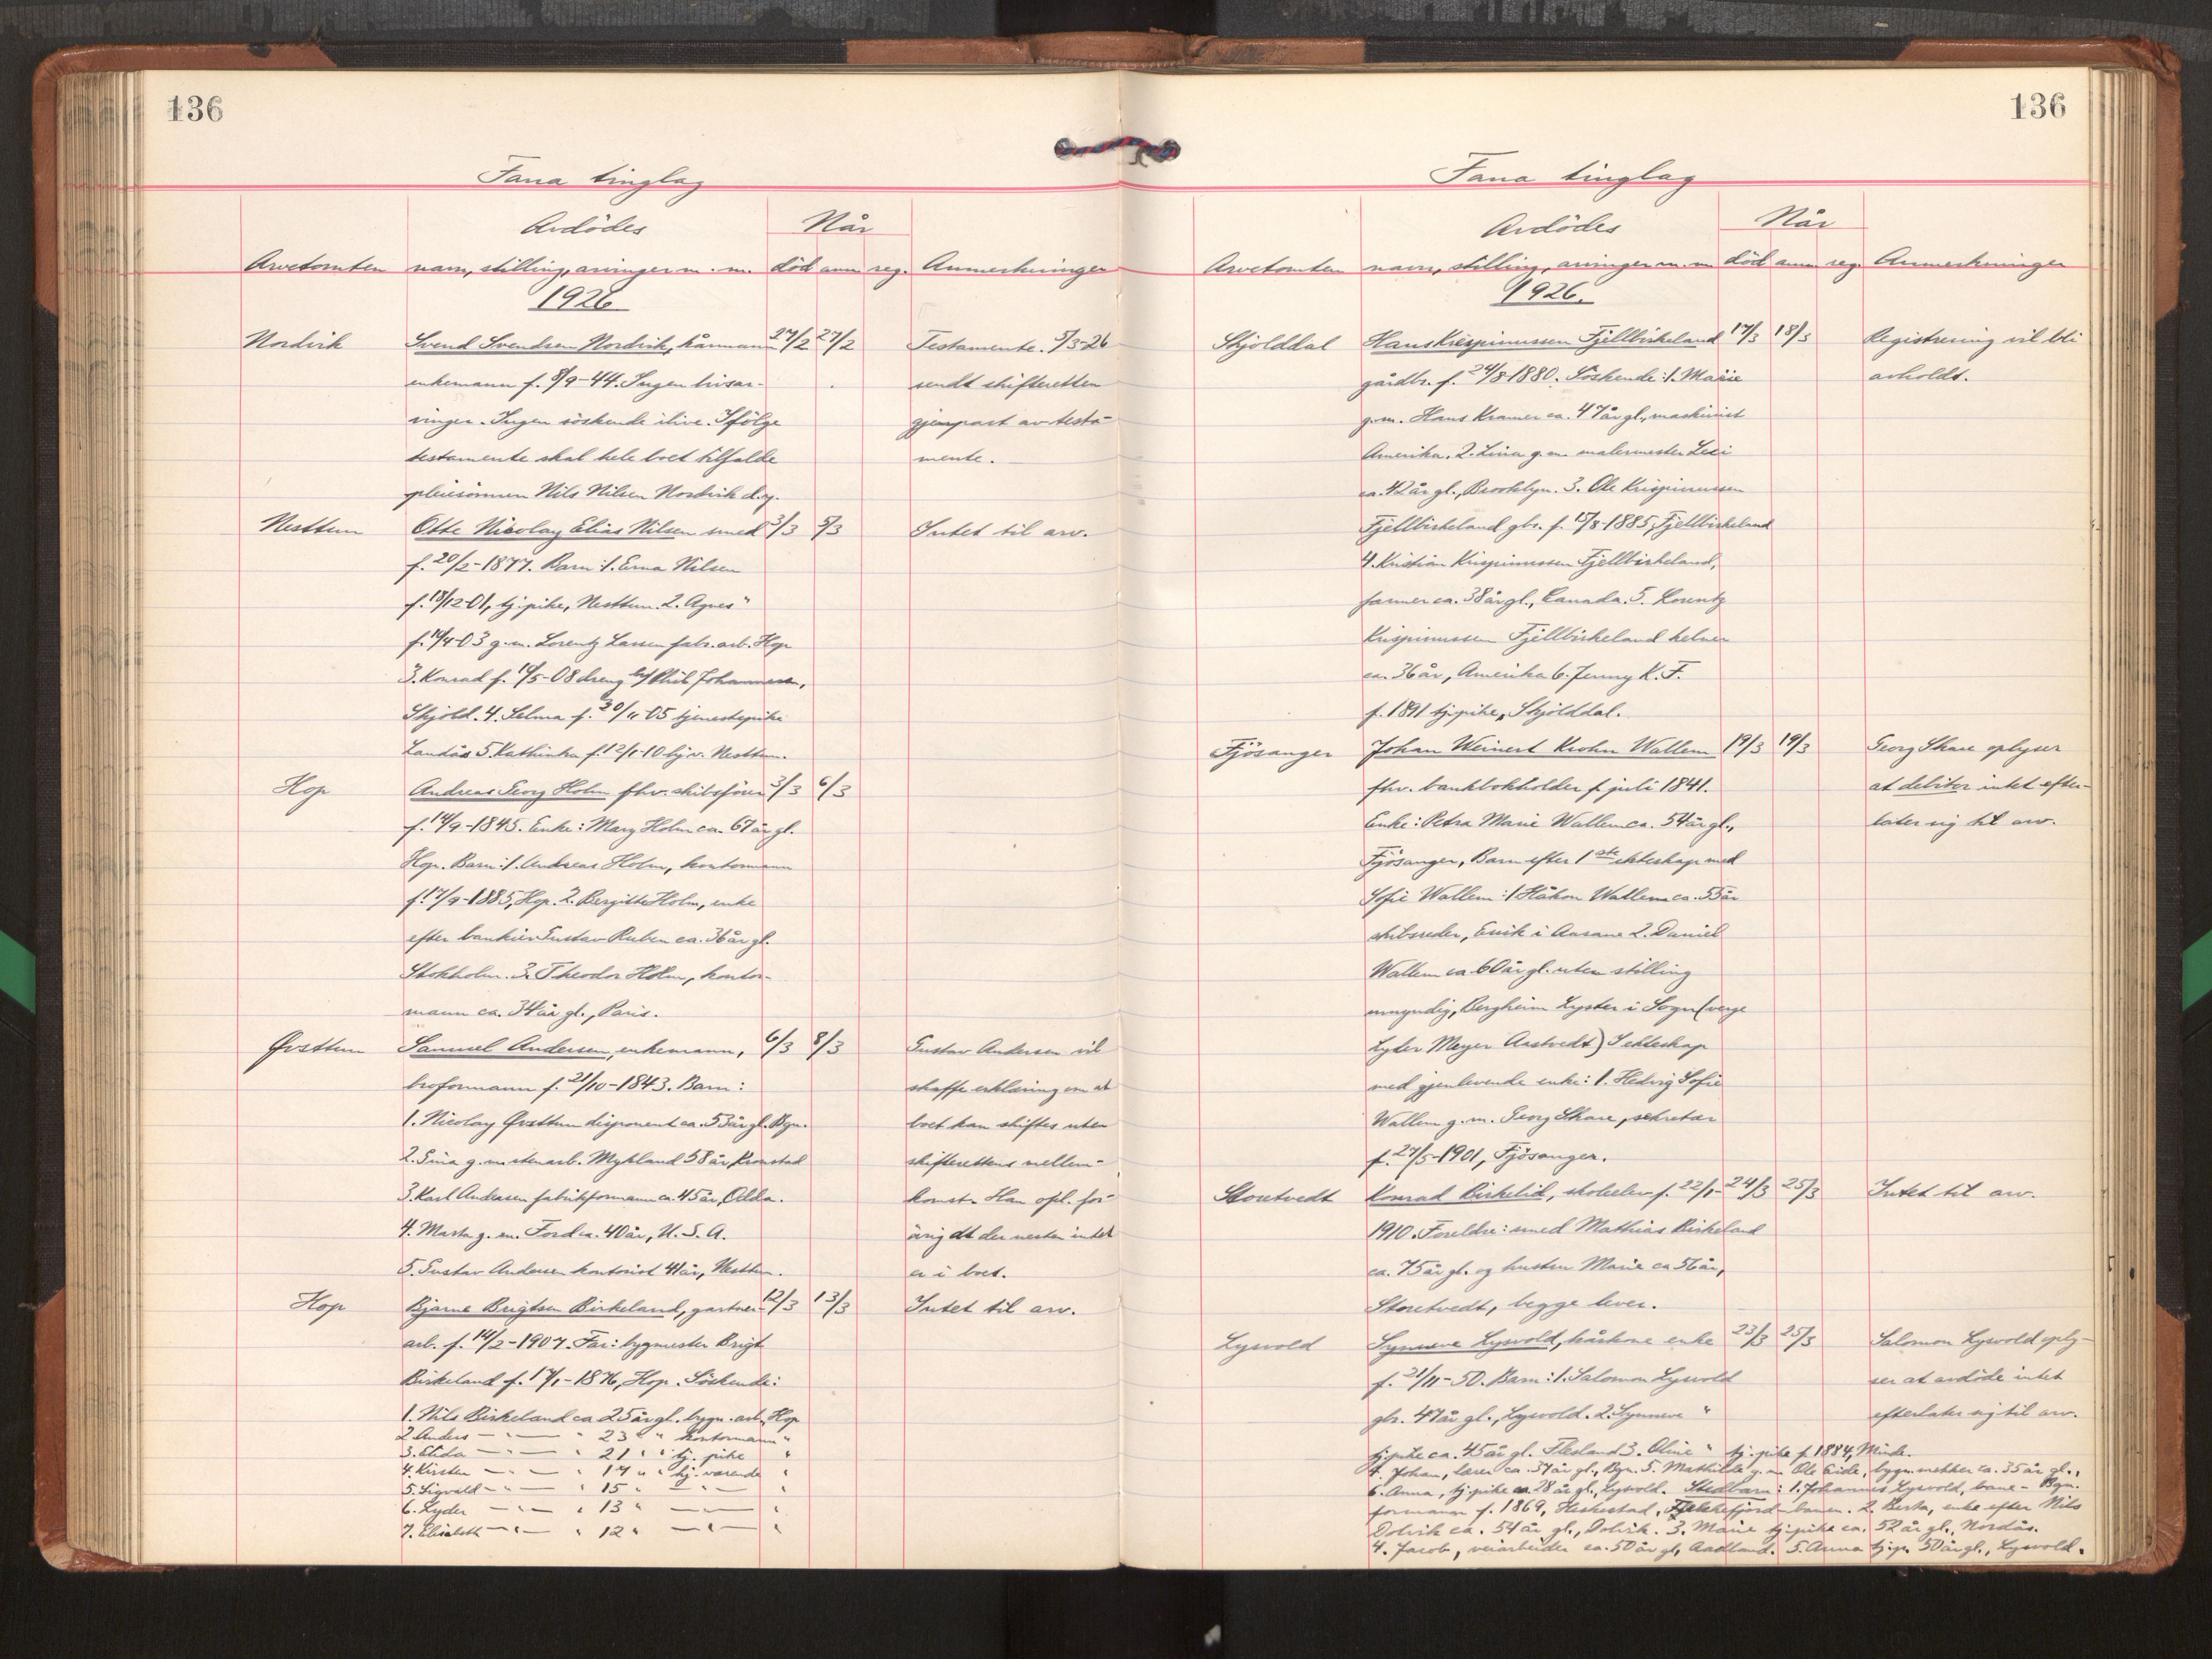 136
Fana tinglag
Avdödes
Når
Arvetomten navn, stilling, arvinger m. m. död anm reg. Anmerkninger
1926
Nordvik Svend Svendsen Nordvik, kårmann 27/2 27/2 Testamente. 5/3-26
enkemann f. 8/9-44. Ingen livsar- sendt skifteretten
vinger. Ingen söskende ilive. Ifölge gjenpart av testa-
testamente skal hele boet tilfalde mente.
pleiesönnen Nils Nilsen Nordvik d.y.
Nesttun Otto Nicolay Elias Nilsen smed 3/3 5/3 Intet til arv.
f. 20/2-1877. Barn: 1. Erna Nilsen
f. 18/12-01, tj.pike, Nesttun. 2. Agnes "
f. 14/4-03 g.m. Lorentz Larsen fabr.arb. Hop
3. Konrad f. 16/5-08 dreng Johannesen,
Skjold. 4. Selma f. 30/11-05 tjenestepike
Landås 5. Kathinka f. 12/1-10 hj.v. Nesttun.
Hop Andreas Georg Holm fhv. skibsförer 3/3 6/3
f. 14/9-1845. Enke: Mary Holm ca. 67 år gl.
Hop. Barn: 1. Andreas Holm, kontormann
f. 17/9-1885, Hop. 2. Bergitte Holm, enke
efter bankier Gustav Ruben ca. 36 år gl.
Stokholm. 3. Theodor Holm, kontor-
mann ca. 34 år gl., Paris.
Øvsttun Samuel Andersen, enkemann, 6/3 8/3 Gustav Andersen vil
broformann f. 21/10-1843. Barn: skaffe erklæring om at
1. Nicolay Øvsttun disponent ca. 53 år gl. Bgn. boet kan skiftes uten
2. Gina g.m. stenarb. Myhland 58 år, Kronstad skifterettens mellem-
3. Karl Andersen fabrikformann ca. 45 år, Odda. komst. Han opl. for-
4. Marta g. m. Ford ca. 40 år, U.S.A. övrig at der nesten intet
5. Gustav Andersen kontorist 41 år, Nesttun. er i boet.
Hop Bjarne Brigtsen Birkeland, gartner- 12/3 13/3 Intet til arv.
arb. f. 14/2-1907. Far: bygmester Brigt
Birkeland f. 17/1-1876, Hop. Söskende:
1. Nils Birkeland ca 25 år gl. bygn.arb. Hop
2. Anders — " — " 23 " " kontormann "
3. — " — " 21 " " tj. pike "
4. Kirsten — " — " 17 " " hj. værende "
5. Sigvald — " — " 15 " — " — "
6. Lyder — " — " 13 " — " — "
7. Elisabeth — " — " 12 " — " — "
136
Fana tinglag
Avdödes
Når
Arvetomten navn, stilling, arvinger m. m. död anm reg. Anmerkninger
1926.
Skjolddal Hans Krispinussen Fjellbirkeland 17/3 18/3 Registrering vil bli
gårdbr. f. 24/8-1880. Söskende: 1. Marie avholdt.
g.m. Hans Kramer ca. 47 år gl., maskinist
Amerika. 2. Lina g.m. malermester
ca. 42 år gl., Brooklyn. 3. Ole Krispinussen
Fjellbirkeland gbr. f. 15/8-1885, Fjellbirkeland
4. Kristian Krispinussen Fjellbirkeland,
farmer ca. 38 år gl., Canada. 5. Lorentz
Krispinussen Fjellbirkeland kelner
ca. 36 år, Amerika 6. Jenny K. F.
f. 1891 tj.pike, Skjolddal.
Fjösanger Johan Weinert Krohn Wallem 19/3 19/3 Georg Skare oplyser
fhv. bankbokholder f. juli 1841. at debitor intet efter-
Enke: Petra Marie Wallem ca. 54 år gl., later sig til arv.
Fjösanger, Barn efter 1ste ekteskap med
Sofie Wallem: 1 Håkon Wallem ca. 55 år
skibsreder, Eivik i Aasane 2. Daniel
Wallem ca 60 år gl. uten stilling
umyndig, Bergheim Lyster i Sogn (verge
Lyder Meyer Aastvedt) I ekteskap
med gjenlevende enke: 1. Hedvig Sofie
Wallem g.m. Georg Skare, sekretær
f. 27/5-1901, Fjösanger.
Storetvedt Konrad Birkelid, skoleelev f. 22/1- 24/3 25/3 Intet til arv.
1910. Foreldre: smed Mathias Birkeland
ca. 75 år gl. og hustru Marie ca 56 år,
Storetvedt, begge lever.
Lysvold Synneve Lysvold, kårkone enke 23/3 25/3 Salomon Lysvold oply-
f. 21/11-50. Barn: 1. Salomon Lysvold ser at avdöde intet
gbr. 47 år gl., Lysvold. 2. Synneve " efterlater sig til arv.
tj.pike ca. 45 år gl. Flesland 3. Oline " tj.pike f. 1884, Minde.
4. Johan, lærer ca. 37 år gl., Bgn. 5. Mathilde g.m. Ole Eide, bygn.snekker ca. 35 år gl.,
6. Anna, tj.pike ca. 28 år gl., Lysvold. Stedbarn: 1. Johannes Lysvold, bane- Bgn.
formann f. 1869, Heskestad, Flekkefjord-banen. 2. Berta, enke efter Nils
Dolvik ca. 54 år gl., Dolvik. 3. Marie tj.pike ca. 52 år gl., Nordås.
4. Jacob, veiarbeider ca. 50 år gl, Aadland. 5. Anna tj.p. 50 år gl., Lysvold.